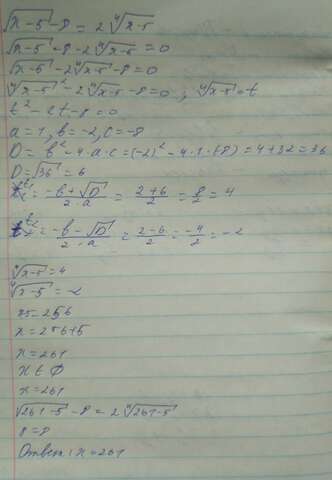 √x-5 - 8 = 2 ∜x-5
√x-5 - 8 - 2 ∜x-5 = 0
√x-5 - 2 ∜x-5 - 8 = 0
∜x-5² - 2 ∜x-5 - 8 = 0 ; ∜x-5 = t
t² - 2t - 8 = 0
a = 1, b = -2, c = -8
D = b² - 4·a·c = (-2)² - 4·1·(-8) = 4+32 = 36
D = √36 = 6
t₁ = -b + √D / 2·a = 2+6 / 2 = 8/2 = 4
t₂ = -b - √D / 2·a = 2-6 / 2 = -4/2 = -2
∜x-5 = 4
∜x-5 = -2
x-5 = 256
x = 256+5
x = 261
x ∈ ∅
x = 261
√261-5 - 8 = 2 ∜261-5
8 = 8
Ответ: x = 261